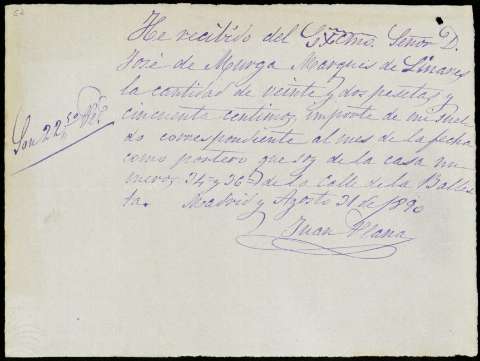 He recibido del Excmo. Señor D.
José de Murga Marqués de Linares
la cantidad de veinte y dos pesetas y
cincuenta centimos, importe de mi suel
do correspondiente al mes de la fecha
como portero que soy de la casa nu
meros 34 y 36 de la Calle de la Balles
ta. Madrid y Agosto 31 de 1890
Juan
Son 22,50 Pts
52